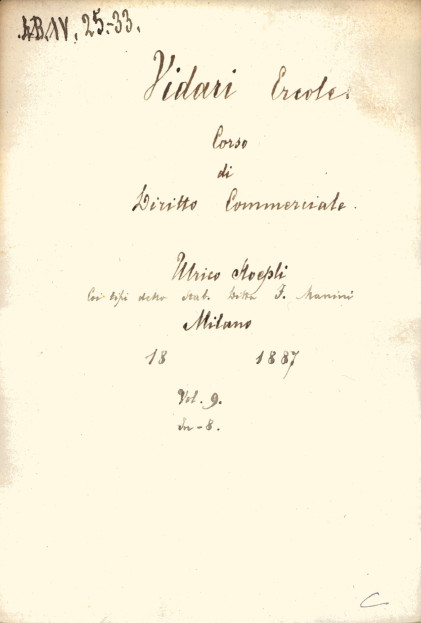 AB.IV. 25.-33.
Vidari Ercole.
Corso
di
Diritto Commerciale.
Ulrico Hoepli
Coi tipi dello Stab. Ditta F. Manini
Milano
18 1887
Vol. 9.
In-8.
C